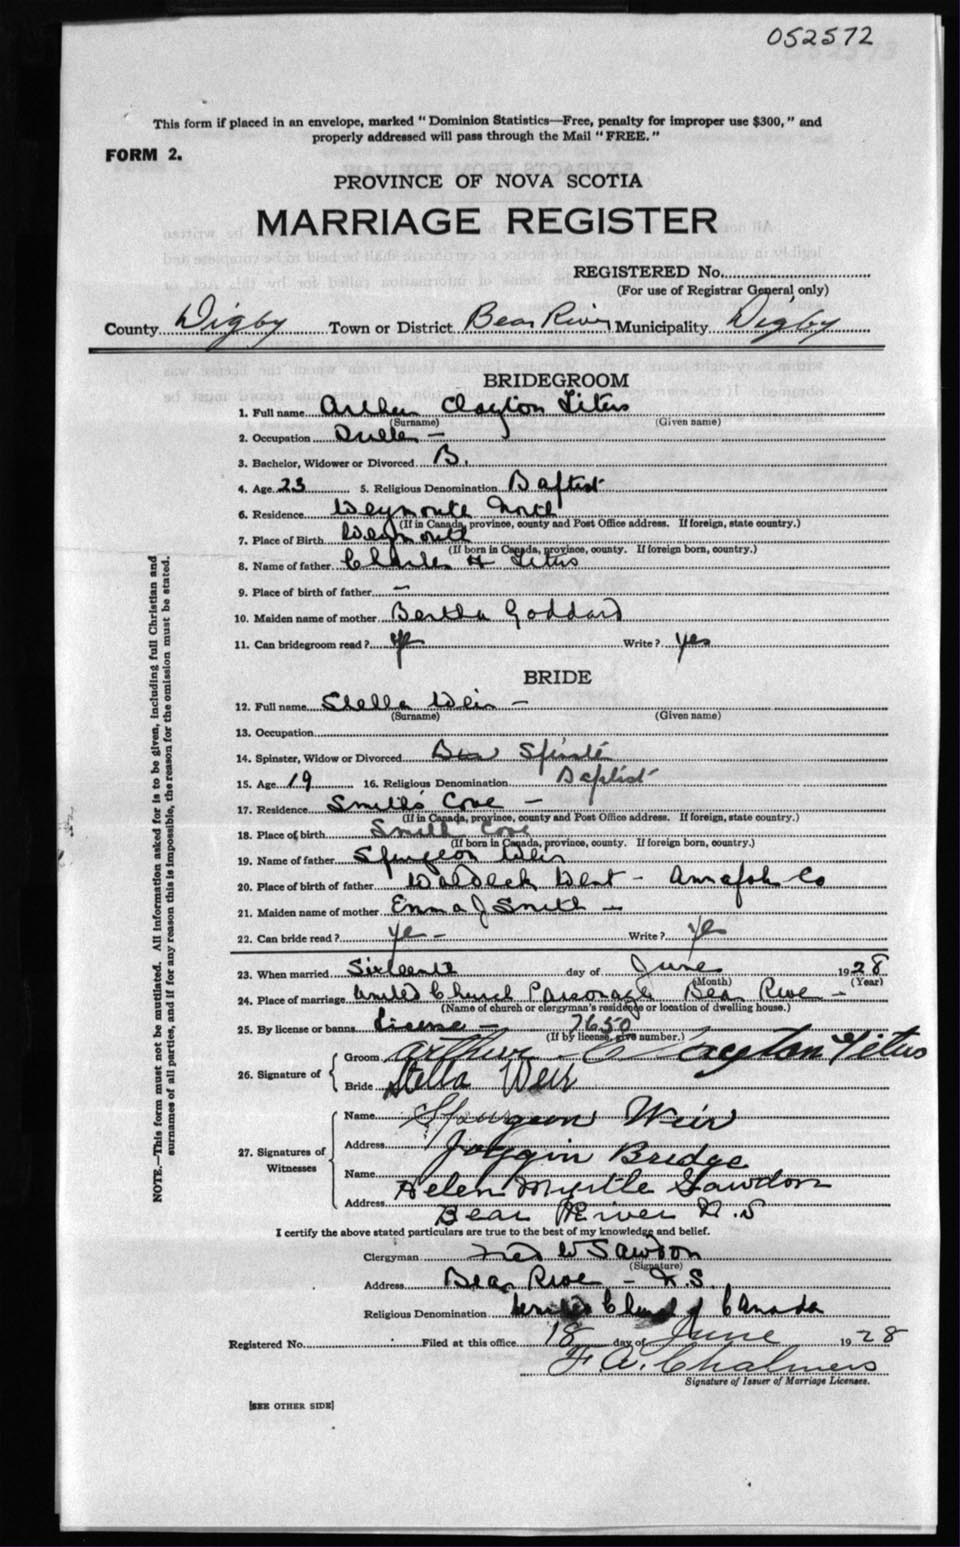 052572
This form if placed in an envelope, marked "Dominion Statistics—Free, penalty for improper use $300," and
properly addressed will pass through the Mail "FREE."
FORM 2.
PROVINCE OF NOVA SCOTIA
MARRIAGE REGISTER
REGISTERED No.
(For use of Registrar General only)
County Digby Town or District Bear River Municipality Digby
BRIDEGROOM
1. Full name Arthur Clayton Titus
(Surname) (Given name)
2. Occupation
3. Bachelor, Widower or Divorced B.
4. Age 23 5. Religious Denomination Baptist
6. Residence Weymouth North
(If in Canada, province, county and Post Office address. If foreign, state country.)
7. Place of Birth Weymouth
(If born in Canada, province, county. If foreign born, country.)
8. Name of father Charles H Titus
9. Place of birth of father —
10. Maiden name of mother Bertha Goddard
11. Can bridegroom read? yes Write? yes
BRIDE
12. Full name Stella Weir —
(Surname) (Given name)
13. Occupation
14. Spinster, Widow or Divorced Spinster
15. Age 19 16. Religious Denomination Baptist
17. Residence Smith's Cove —
(If in Canada, province, county and Post Office address. If foreign, state country.)
18. Place of birth Smith Cove
(If born in Canada, province, county. If foreign born, country.)
19. Name of father Spurgeon Weir
20. Place of birth of father Waldeck West — Annapolis Co
21. Maiden name of mother Emma J Smith —
22. Can bride read? yes — Write? yes
23. When married Sixteenth day of June 1928
(Month) (Year)
24. Place of marriage United Church Parsonage Bear River —
(Name of church or clergyman's residence or location of dwelling house.)
25. By license or banns License — 7650
(If by license, give number.)
26. Signature of
Groom Arthur Clayton Titus
Bride Stella Weir
27. Signatures of Witnesses
Name Spurgeon Weir
Address Joggin Bridge
Name Helen Myrtle Sawdon
Address Bear River N.S
I certify the above stated particulars are true to the best of my knowledge and belief.
Clergyman W Sawdon
(Signature)
Address Bear River — N.S.
Religious Denomination United Church of Canada
Registered No. Filed at this office 18 day of June 1928
F. A. Chalmers
Signature of Issuer of Marriage Licenses.
[SEE OTHER SIDE]
NOTE.—This form must not be mutilated. All information asked for is to be given, including full Christian and
surnames of all parties, and if for any reason this is impossible, the reason for the omission must be stated.